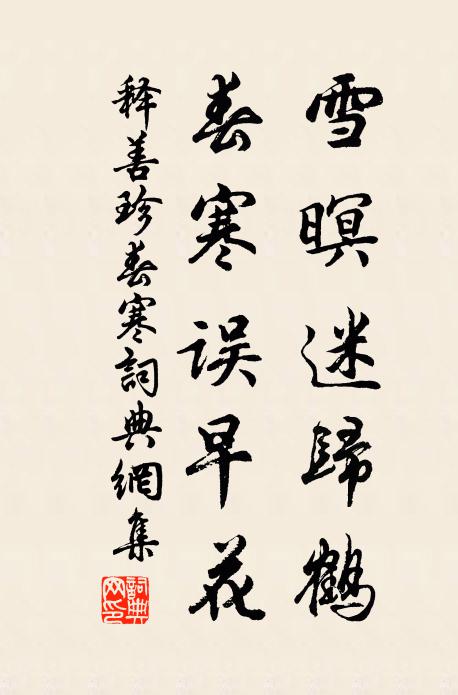 雪暝迷歸鶴
春寒误早花
释善珍春寒詞典網集
詞典網印